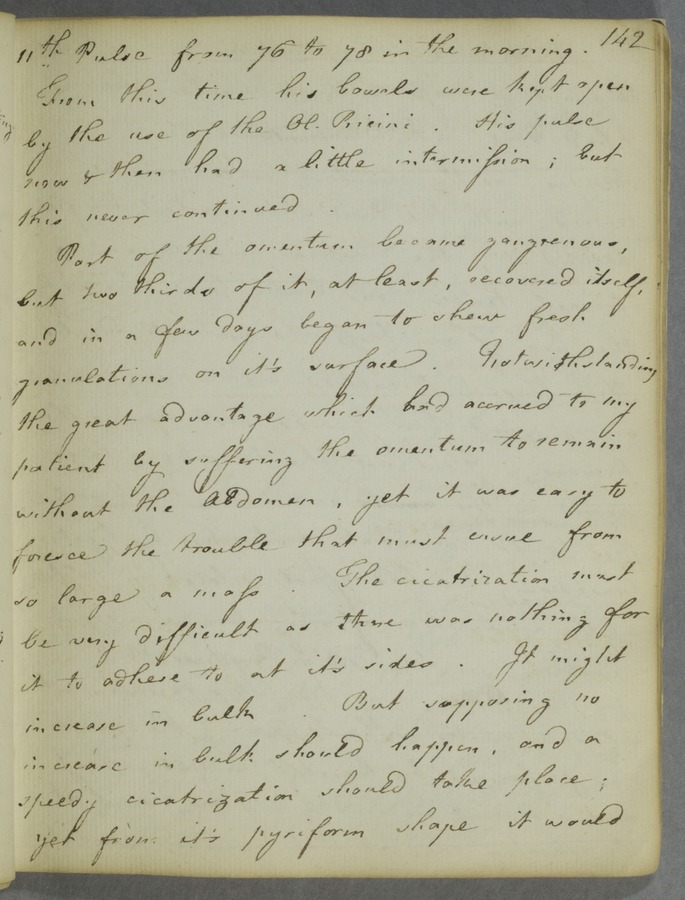 142
11th Pulse from 76 to 78 in the morning.
From this time his bowels were kept open
by the use of the Ol. Ricini. His pulse
now & then had a little intermission; but
this never continued.
Part of the omentum became gangrenous,
but two thirds of it, at least, recovered itself,
and in a few days began to shew fresh
granulations on it's surface. Notwithstanding
the great advantage which had accrued to my
patient by suffering the omentum to remain
without the Abdomen, yet it was easy to
foresee the trouble that must ensue from
so large a mass. The cicatrization must
be very difficult as there was nothing for
it to adhere to at it's sides. It might
increase in bulk. But supposing no
increase in bulk should happen, and a
speedy cicatrization should take place;
yet from it's pyriform shape it would